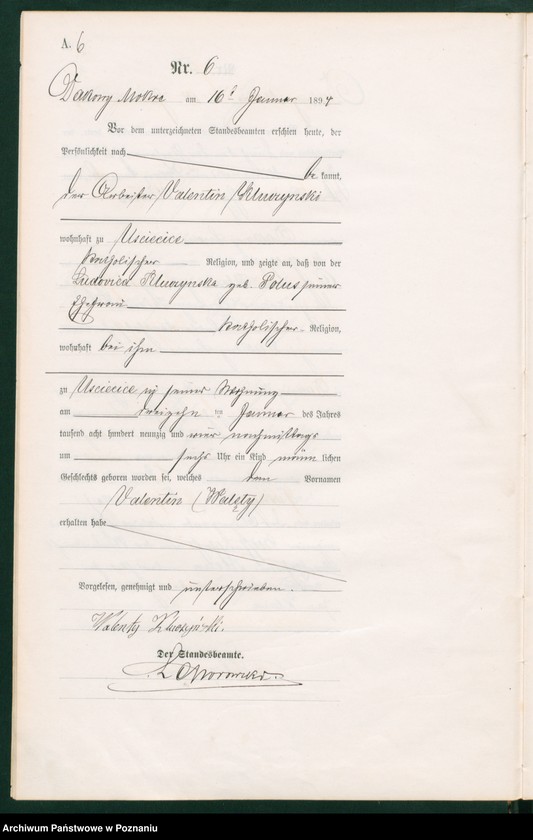 A. 6
Nr. 6
Dakowy Mokre am 16t Januar 1894
Vor dem unterzeichneten Standesbeamten erschien heute, der
Persönlichkeit nach
be kannt,
der Arbeiter Valentin Kluczynski
wohnhaft zu Usciecice
katholischer Religion, und zeigte an, daß von der
Ludovica Kluczynska geb. Polus seiner
Ehefrau
katholischer Religion,
wohnhaft bei ihm
zu Usciecice in seiner Wohnung
am dreizehn ten Januar des Jahres
tausend acht hundert neunzig und vier nachmittags
um sechs Uhr ein Kind männ lichen
Geschlechts geboren worden sei, welches den Vornamen
Valentin (Walęty)
erhalten habe
Vorgelesen, genehmigt und unterschrieben.
Walenty Kluczyński.
Der Standesbeamte.
Archiwum Państwowe w Poznaniu